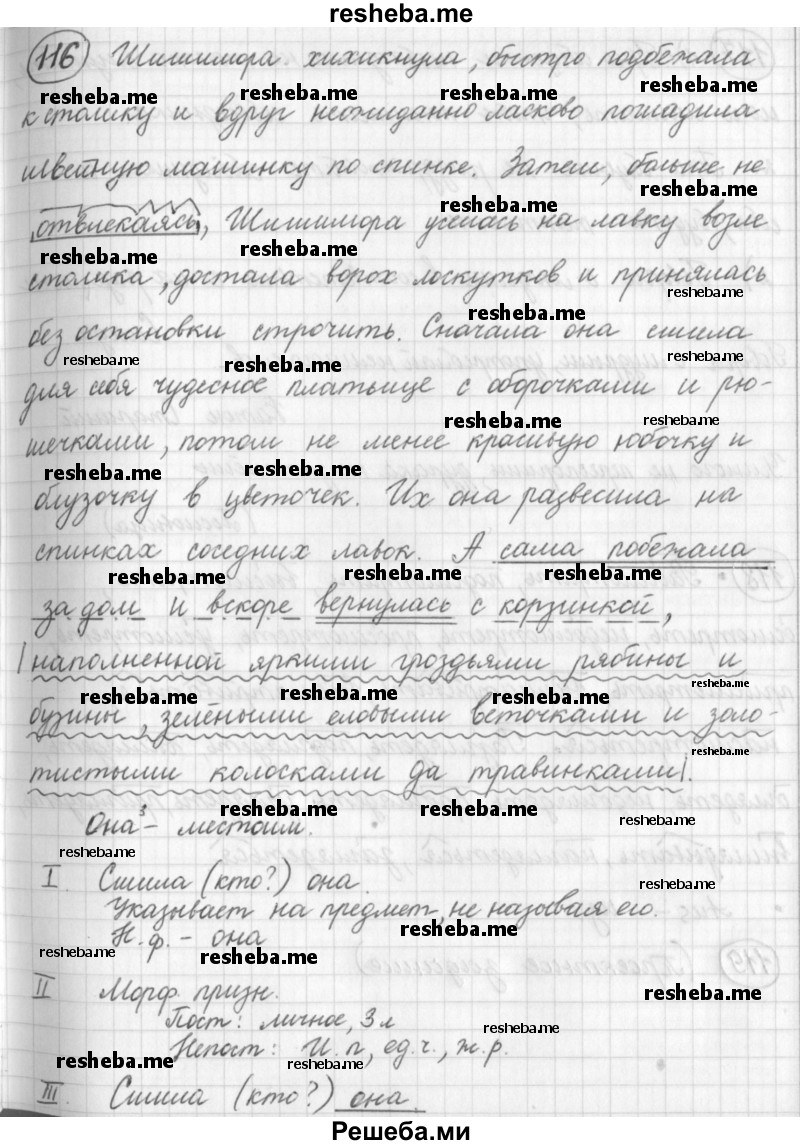 resheba.me
116 Шишимора хихикнула, быстро подбежала
resheba.me resheba.me resheba.me resheba.me
к столику и вдруг неожиданно ласково погладила
цветную машинку по спинке. Затем, больше не
resheba.me resheba.me resheba.me resheba.me
отвлекаясь, Шишимора уселась на лавку возле
столика, достала ворох лоскутков и принялась
resheba.me
resheba.me
без остановки строчить. Сначала она сшила
resheba.me resheba.me resheba.me
для себя чудесное платьице с оборочками и рю-
resheba.me resheba.me
шечками, потом не менее красивую юбочку и
resheba.me resheba.me
блузочку в цветочек. Их она развесила на
спинках соседних лавок. А сама побежала
resheba.me resheba.me resheba.me
за дом и вскоре вернулась с корзинкой,
наполненной яркими гроздьями рябины и
resheba.me resheba.me resheba.me resheba.me
бузины, зелёными еловыми веточками и золо-
resheba.me
тистыми колосками да травинками.
resheba.me resheba.me resheba.me
Она³ - местоим.
resheba.me
I. Сшила (кто?) она.
resheba.me
Указывает на предмет, не называя его.
resheba.me
Н.ф. - она
resheba.me resheba.me
II Морф. призн.
resheba.me
Пост: личное, 3 л
resheba.me
Непост: И.п, ед.ч., ж.р.
resheba.me resheba.me resheba.me
III Сшила (кто?) она.
resheba.me
Решеба.ми